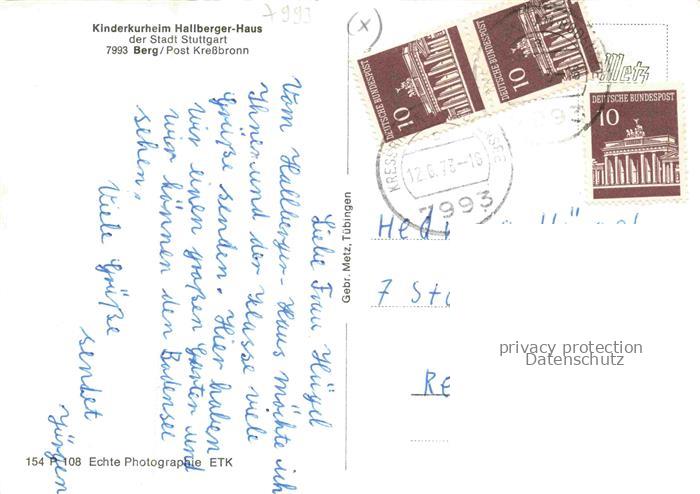 7993
Kinderkurheim Hallberger-Haus
der Stadt Stuttgart
7993 Berg/Post Kreßbronn
(x)
Liebe Frau Hügel
Vom Hallberger-Haus möchte ich
Ihnen und der Klasse viele
Grüße senden. Hier haben
wir einen großen Garten und
wir können den Bodensee
sehen.
Viele Grüße
sendet
Jürgen
154 P 108 Echte Photographie ETK
Gebr. Metz, Tübingen
DEUTSCHE BUNDESPOST
10
DEUTSCHE BUNDESPOST
10
DEUTSCHE BUNDESPOST
10
Metz
12.6.73-18
7993
7 St
privacy protection
Datenschutz